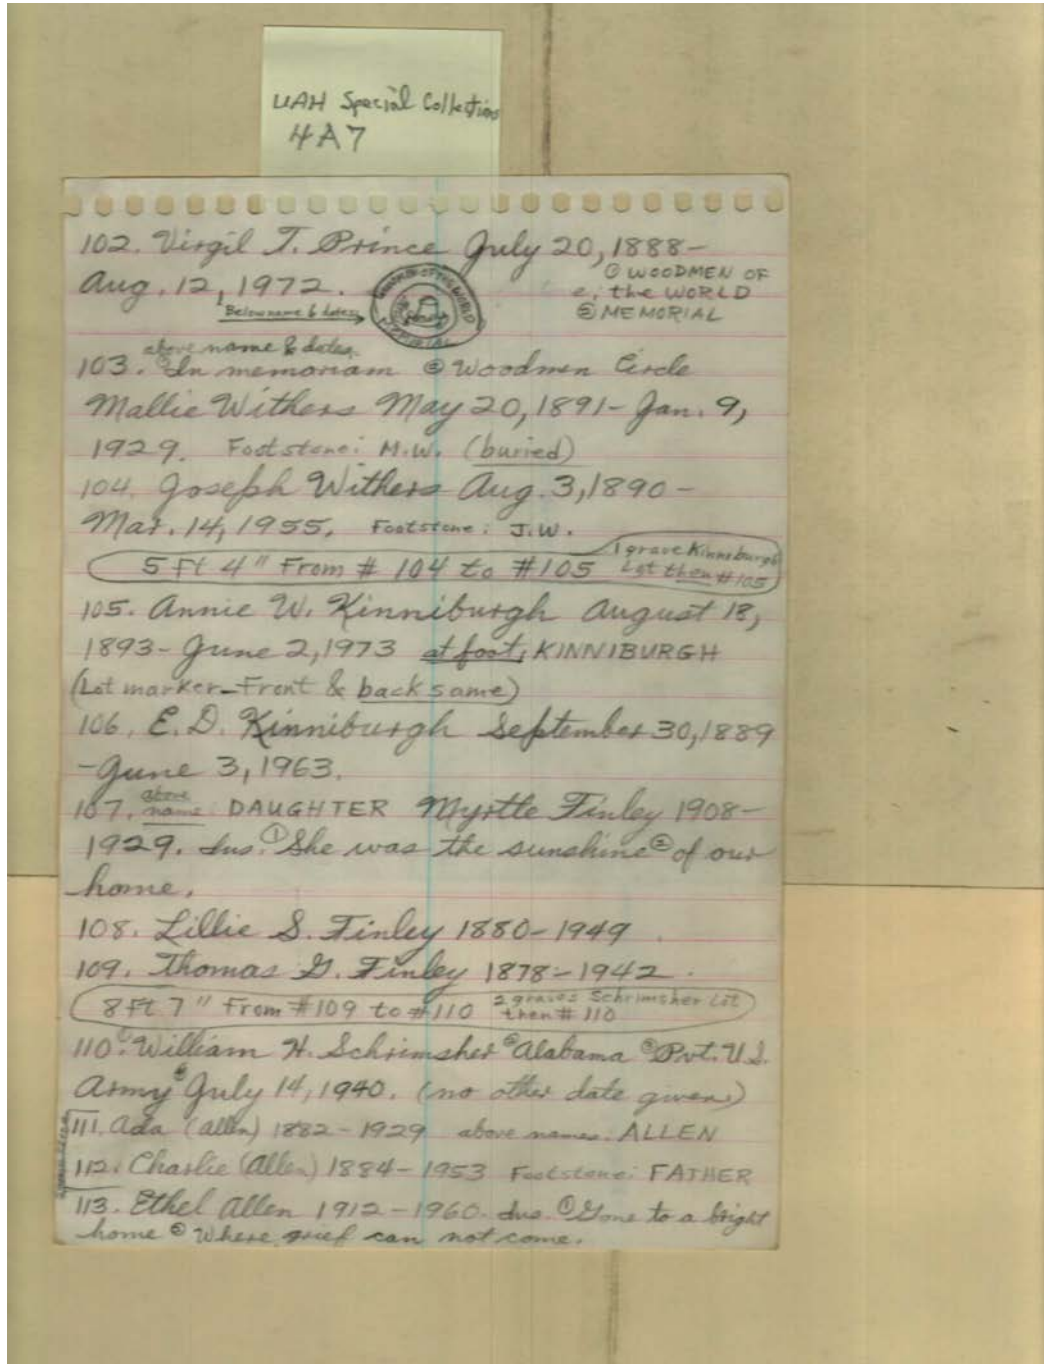 UAH Special Collections
4A7
102. Virgil T. Prince July 20, 1888-
Aug. 12, 1972.
① WOODMEN OF
e. the WORLD
② MEMORIAL
Below name & dates
WOODMEN OF THE WORLD
MEMORIAL
above name & dates
103. ① In memoriam ② Woodmen Circle
Mallie Withers May 20, 1891- Jan. 9,
1929. Footstone: M.W. (buried)
104. Joseph Withers Aug. 3, 1890-
Mar. 14, 1955. Footstone: J.W.
5 Ft 4" From # 104 to #105
1 grave Kinniburgh
Lot then #105
105. Annie W. Kinniburgh August 18,
1893- June 2, 1973 at foot: KINNIBURGH
(Lot marker-Front & back same)
106. E.D. Kinniburgh September 30, 1889
-June 3, 1963.
above
107. name: DAUGHTER Myrtle Finley 1908-
1929. Ins. ① She was the sunshine ② of our
home.
108. Lillie S. Finley 1880-1949.
109. Thomas G. Finley 1878-1942.
8 Ft 7" From #109 to #110
2 graves Schrimsher Lot
then # 110
110. ① William H. Schrimsher ② Alabama ③ Pvt. U.S.
Army ④ July 14, 1940. (no other date given)
111. Ada (Allen) 1882-1929 above names: ALLEN
112. Charlie (Allen) 1884-1953 Footstone: FATHER
113. Ethel Allen 1912-1960. Ins. ① Gone to a bright
home ② Where grief can not come.